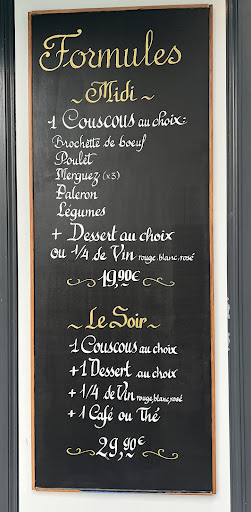 Formules
~ Midi ~
1 Couscous au choix:
Brochette de boeuf
Poulet
Merguez (x3)
Paleron
Légumes
+ Dessert au choix
ou 1/4 de Vin rouge, blanc, rosé
19,90€
~ Le Soir ~
1 Couscous au choix
+1 Dessert au choix
+ 1/4 de Vin rouge, blanc, rosé
+ 1 Café ou Thé
29,90€